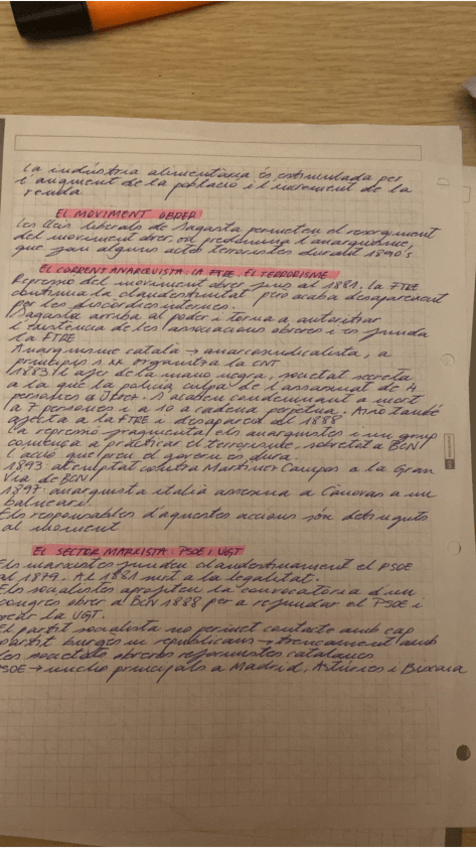 La indústria alimentària és estimulada per
l'augment de la població i l'increment de la
renda
EL MOVIMENT OBRER
Les lleis liberals de Sagasta permeten el resorgiment
del moviment obrer, on predomina l'anarquisme,
que fan alguns actes terroristes durant 1890's
EL CORRENT ANARQUISTA: LA FTRE, EL TERRORISME
Repressió del moviment obrer fins al 1881. La FTRE
continua la clandestinitat però acaba desapareixent
per les discòrdies internes.
Sagasta arriba al poder i torna a autoritzar
l'existència de les associacions obreres i es funda
la FTRE
Anarquisme català → anarcosindicalista, a
principis s.XX organitza la CNT
1883: l'afer de la mano negra, societat secreta
a la que la policia culpa de l'assassinat de 4
persones a Jerez. S'acaben condemnant a mort
a 7 persones i a 10 a cadena perpètua. Això també
afecta a la FTRE i desapareix al 1888
La repressió fragmenta els anarquistes i un grup
comença a practicar el terrorisme, sobretot a BCN
L'acció que pren el govern és dura.
1893: atemptat contra Martínez Campos a la Gran
Via de BCN
1897: anarquista italià assassina a Cánovas a un
balneari.
Els responsables d'aquestes accions són detinguts
al moment
EL SECTOR MARXISTA: PSOE I UGT
Els marxistes funden clandestinament el PSOE
al 1879. Al 1881 surt a la legalitat.
Els socialistes aprofiten la convocatòria d'un
congrés obrer al BCN 1888 per a refundar el PSOE i
crear la UGT.
El partit socialista no permet contacte amb cap
partit burgès ni republicans → trencament amb
les societats obreres reformistes catalanes
PSOE → nuclis principals a Madrid, Astúries i Biscaia